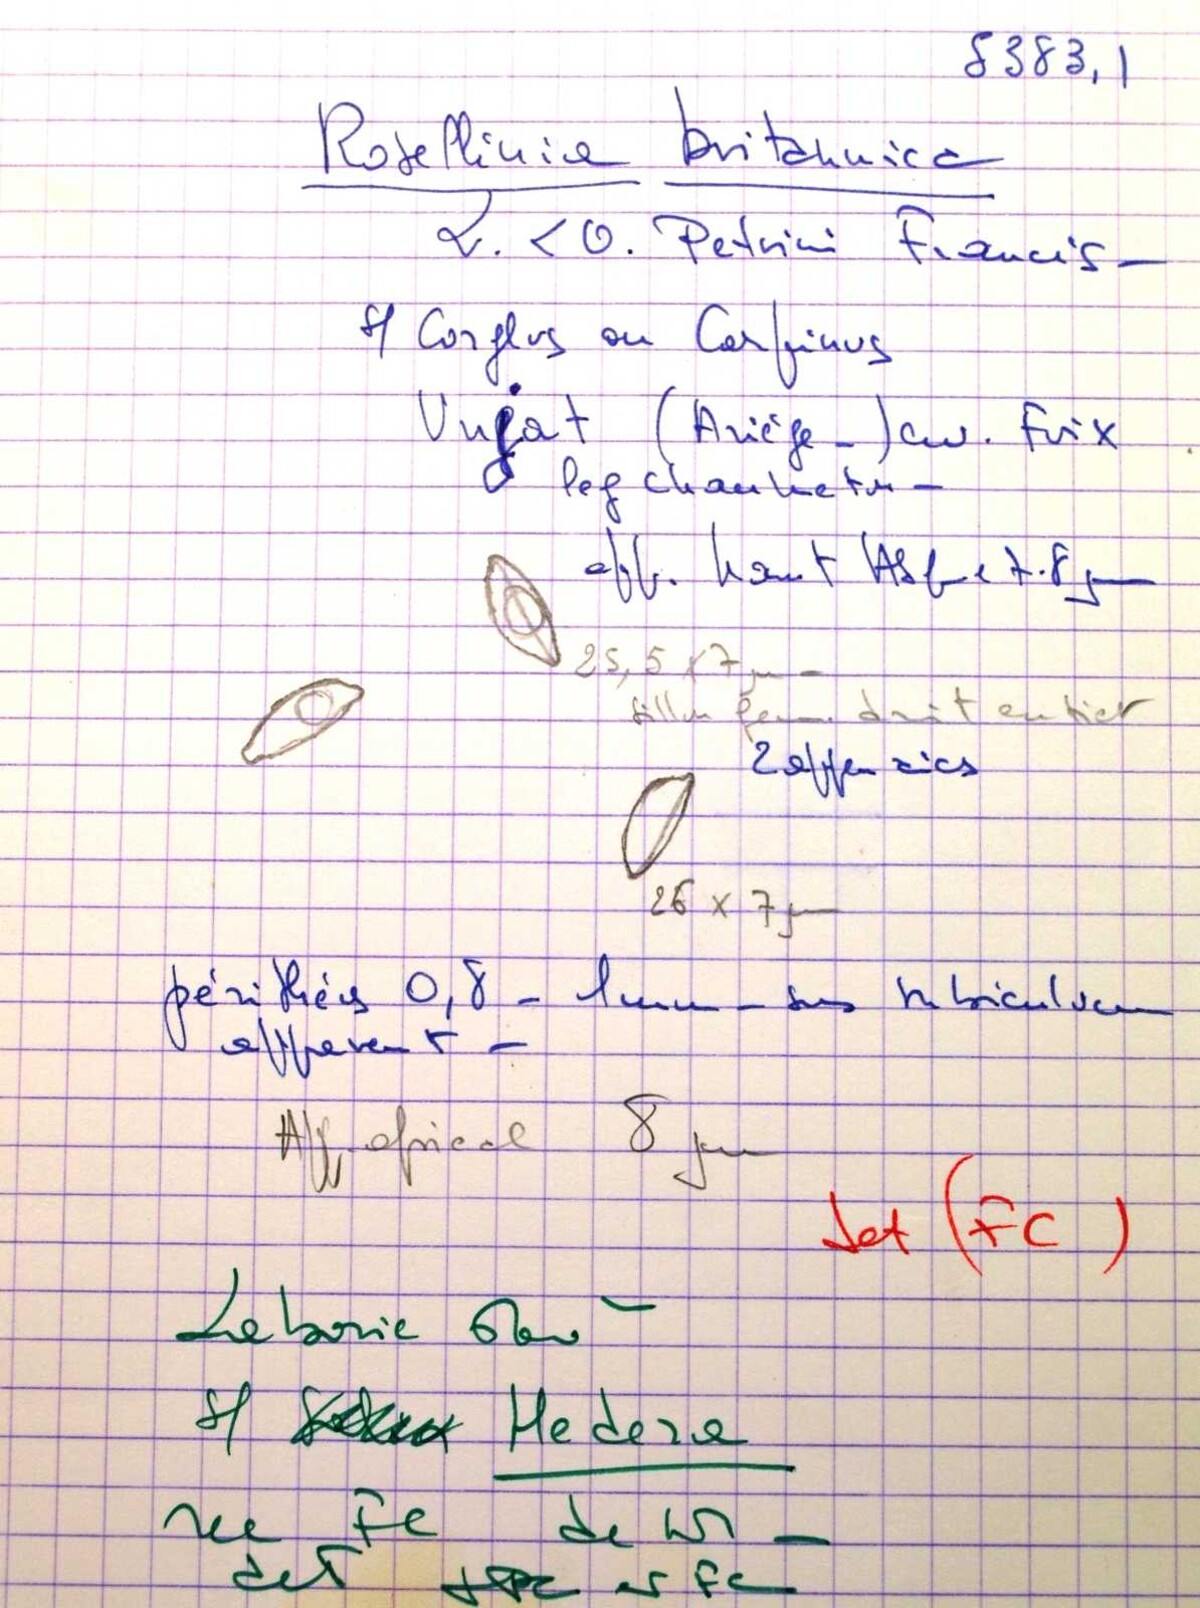 8383,1
Rosellinia britannica
L. & O. Petrini Francis
s/ Corylus ou Carpinus
(Ariège) Foix
leg
app. haut 7.8 µm
25,5 x 7 µm
sillon germ. droit entier
2 appendices
26 x 7 µm
périthèces 0,8 - 1 mm - sans subiculum
apparent -
App apical 8 µm
det (FC)
s/ Hedera
rec FC
det FC